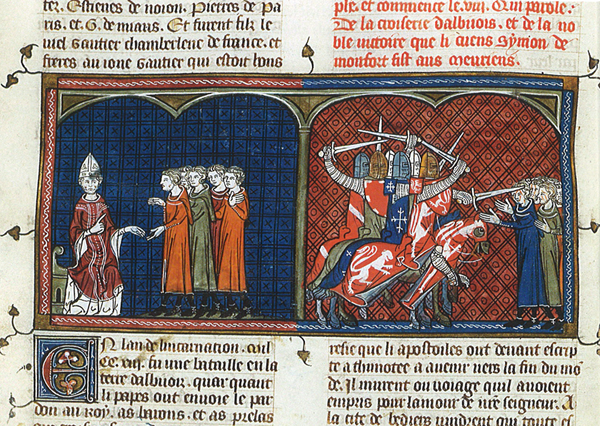 ter. Estienes de noion. Pietres de Pa
ris. et. G. de miaus. Et furent fil le
uiel gautier chamberlenc de france. et
freres au ione gautier qui estoit bons
ple. et commence le. viij. Qui parole:
De la croiserie dalbiiois. et de la no
ble uictoire que li cuens symon de
monfort fist as meutriens.
En lan de lincarnation. mil
CC. viij. fu une bataille en la
terre dalbiior. quar quant
li papes ont enuoie le par
don au roy. as barons. et as prelas
resie que li apostoiles ont deuant escrip
te a thimotee a auenir uers la fin du mo
de. Il murent ou uoiage quil auoient
empris pour lamour de nre seigneur. A
la cite de bediers uindrent qui toute es